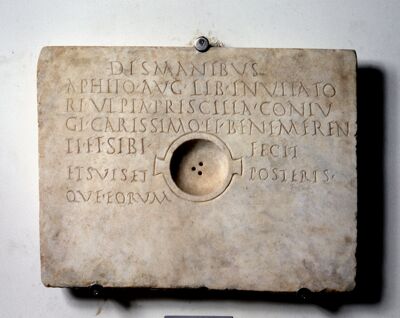 DIS MANIBVS
APHITO·AVG·LIB·INVITATO
RI VLPIA PRISCILLA·CONIV
GI·CARISSIMO·ET·BENEMEREN
TI·ET·SIBI FECIT
ET SVIS ET POSTERIS·
QVE EORVM